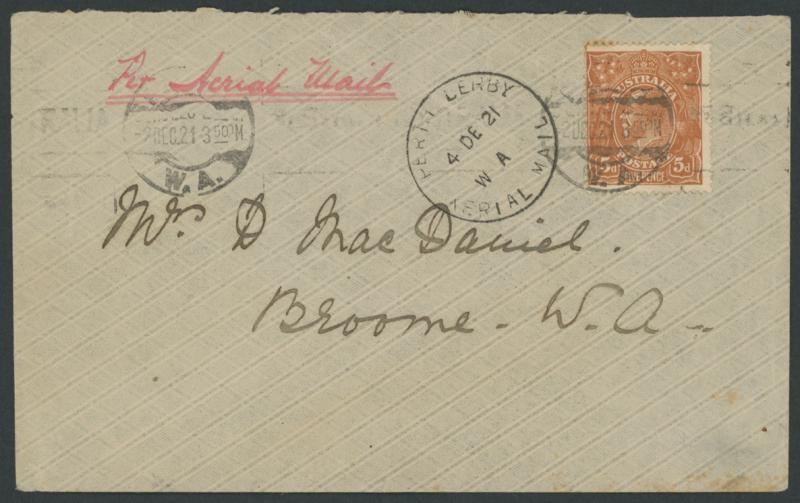 Per Aerial Mail
-2DEC.21 3 50PM
W.A.
PERTH DERBY
4 DE 21
W A
AERIAL MAIL
AUSTRALIA
5d POSTAGE 5d
FIVE PENCE
Mrs D MacDaniel.
Broome. W.A.